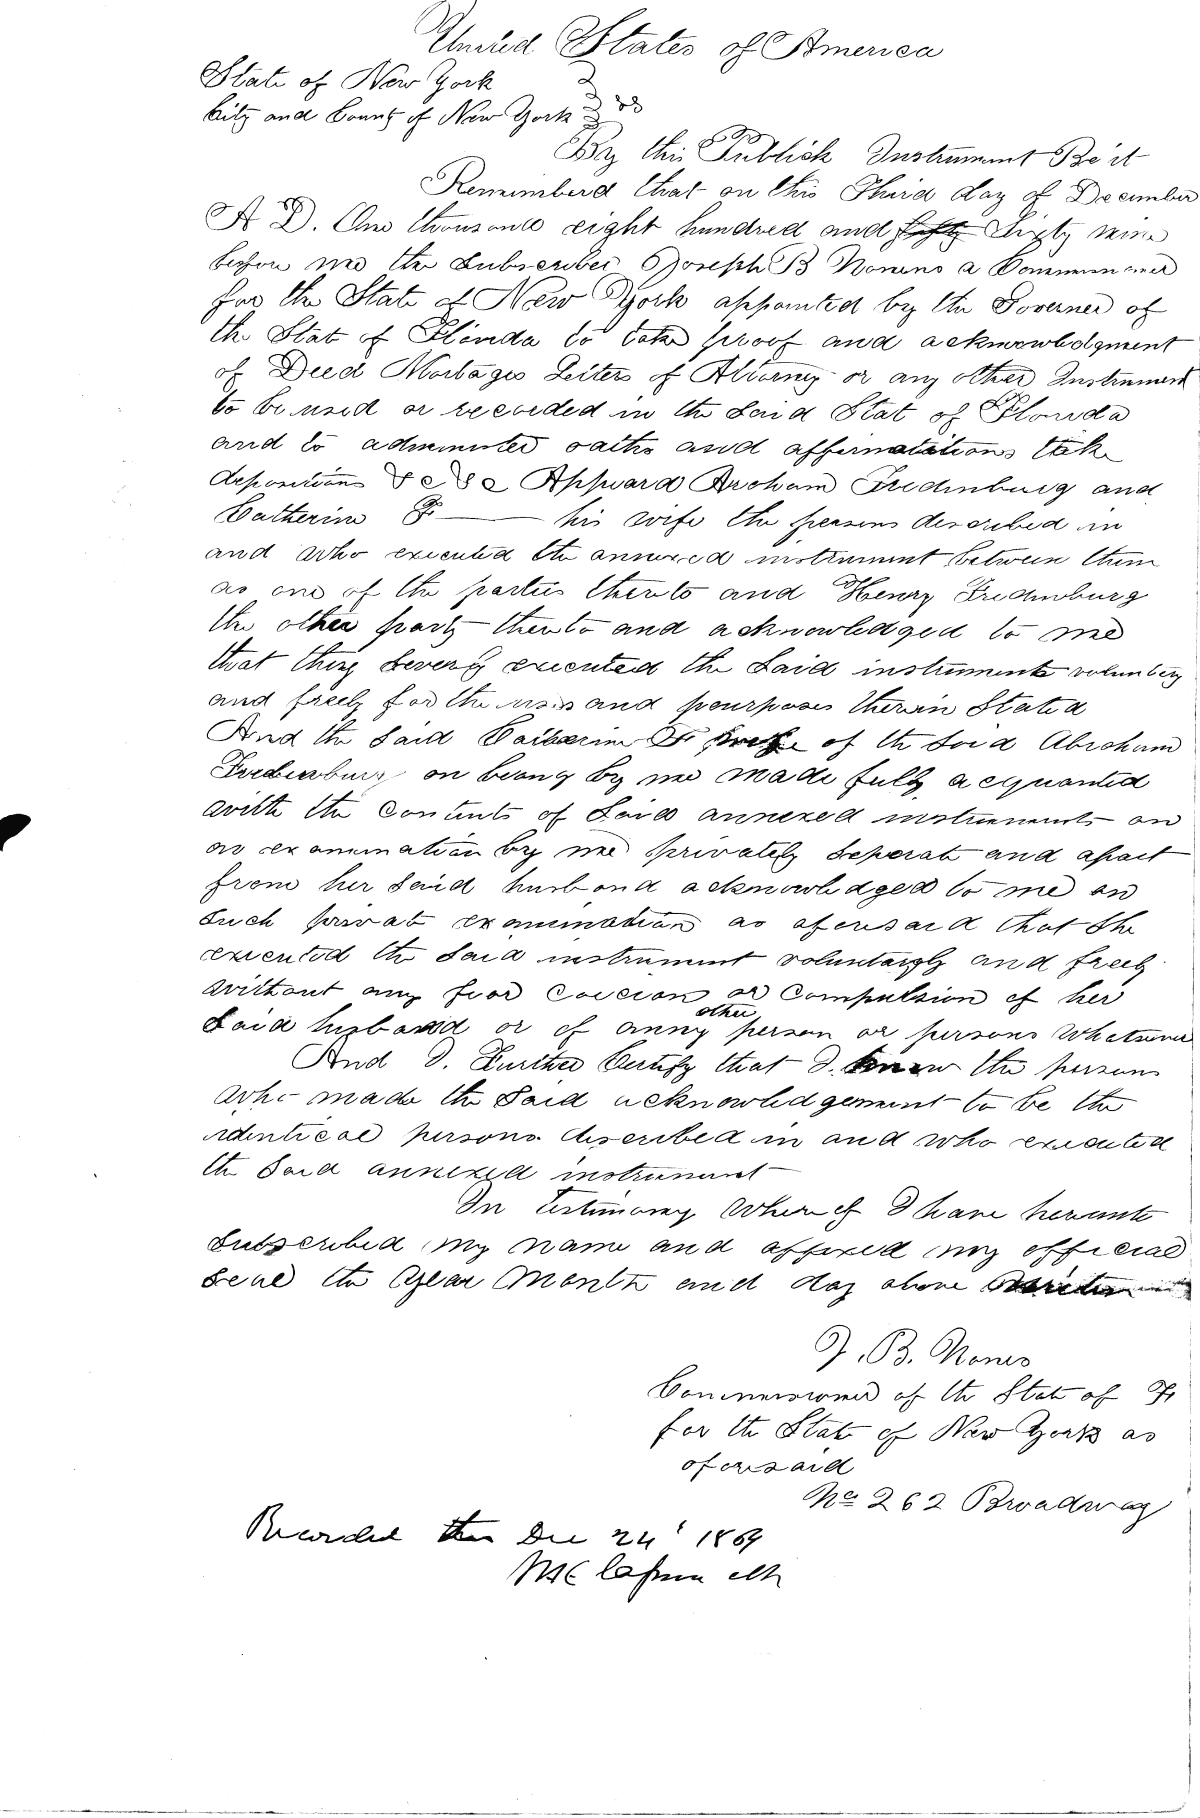 United States of America
State of New York
City and County of New York } SS
By this Publick Instrument Be it
Rememberd that on this Third day of December
A D. One thousand eight hundred and fifty Sixty nine
before me the Subscriber Joseph B Nones a Commissioner
for the State of New York appointed by the Governer of
the Stat of Florida to take proof and acknowledgment
of Deed Mortages Leiters of Attorney or any other Instrument
to be used or recorded in the Said Stat of Florida
and to administer oaths and affirmatations take
depositions &c &c Appeard Abraham Fredenburg and
Catherine F his wife the persons described in
and who executed the annexed instrument between them
as one of the parties thereto and Henry Fredenburg
the other party thereto and acknowledged to me
that they severly executed the Said instrument volunbery
and freely for the uses and pourposes therein Stated
And the Said Catherine F wife of the Said Abraham
Fredenburg on being by me made fully acquanted
with the Contents of Said annexed instruments on
an examination by me privately Seperate and apart
from her Said husband acknowledged to me on
Such privat examination as aforesaid that She
executed the Said instrument voluntarily and freely
without any fear Coicion or Compulsion of her
other
Said husband or of anny person or persons Whatsoever
And I. Further Certify that I. know the persons
who made the Said acknowledgement to be the
identical persons described in and who executed
the Said annexed instrument
In Testimony Whereof I have hereunto
Subscribed my name and affixed my official
Seal the Year Month and day above written
J. B. Nones
Commissioner of the State of F
for the State of New York as
aforesaid
No 262 Broadway
Recorded this Dec 24' 1869